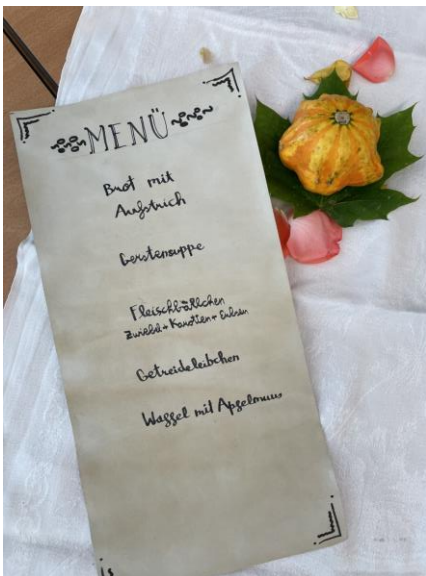 MENÜ
Brot mit
Aufstrich
Gerstensuppe
Fleischbällchen
Zwiebel + Karotten + Erbsen
Getreidelaibchen
Waffel mit Apfelmus